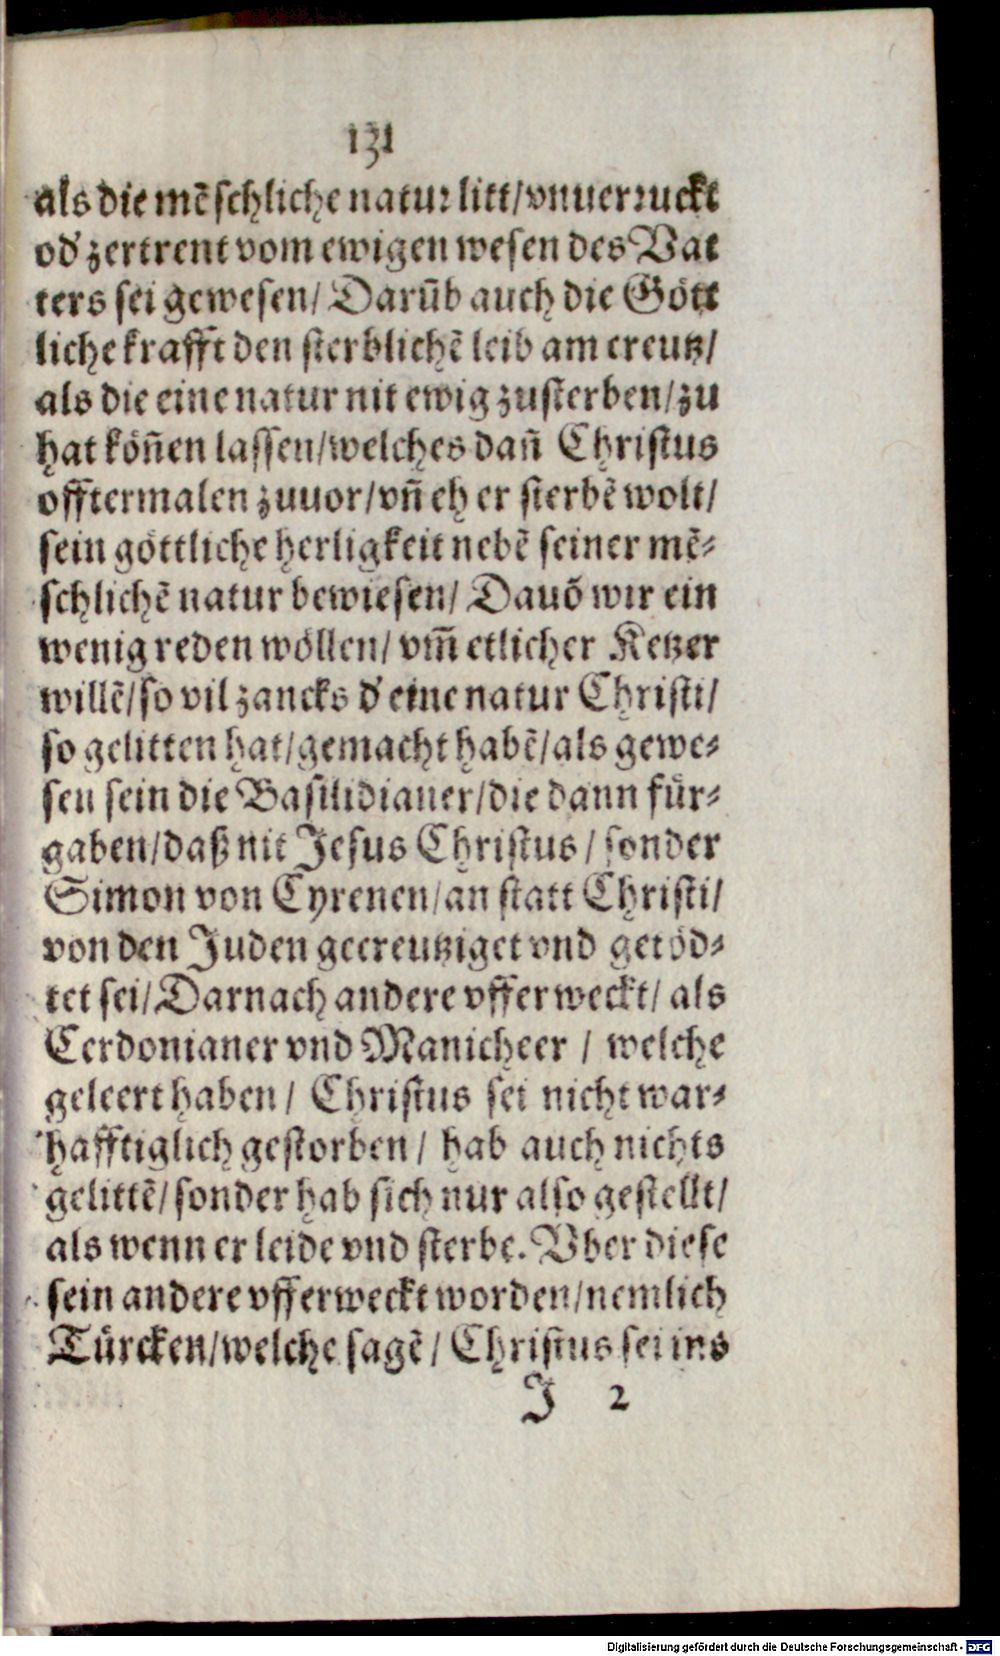 131
als die mẽschliche natur litt/vnuerruckt
od' zertrent vom ewigen wesen des Vat
ters sei gewesen/ Darũb auch die Gött
liche krafft den sterblichẽ leib am creutz/
als die eine natur nit ewig zusterben/zu
hat köñen lassen/welches dañ Christus
offtermalen zuuor/vñ eh er sterbẽ wolt/
sein göttliche herligkeit nebẽ seiner mẽ-
schlichẽ natur bewiesen/ Dauõ wir ein
wenig reden wöllen/ vm̃ etlicher Ketzer
willẽ/so vil zancks d' eine natur Christi/
so gelitten hat/gemacht habẽ/als gewe-
sen sein die Basilidianer/die dann für-
gaben/daß nit Jesus Christus/ sonder
Simon von Cyrenen/an statt Christi/
von den Juden gecreutziget vnd getöd-
tet sei/Darnach andere vfferweckt/ als
Cerdonianer vnd Manicheer / welche
geleert haben/ Christus sei nicht war-
hafftiglich gestorben/ hab auch nichts
gelittẽ/sonder hab sich nur also gestellt/
als wenn er leide vnd sterbe. Vber diese
sein andere vfferweckt worden/nemlich
Türcken/welche sagẽ/ Christus sei ins
J 2
Digitalisierung gefördert durch die Deutsche Forschungsgemeinschaft - DFG